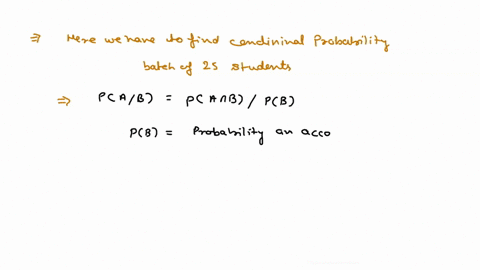 ⇒ Here we have to find condininal Probability
batch of 25 students
⇒ P(A/B) = P(A∩B) / P(B)
P(B) = Probability an acco